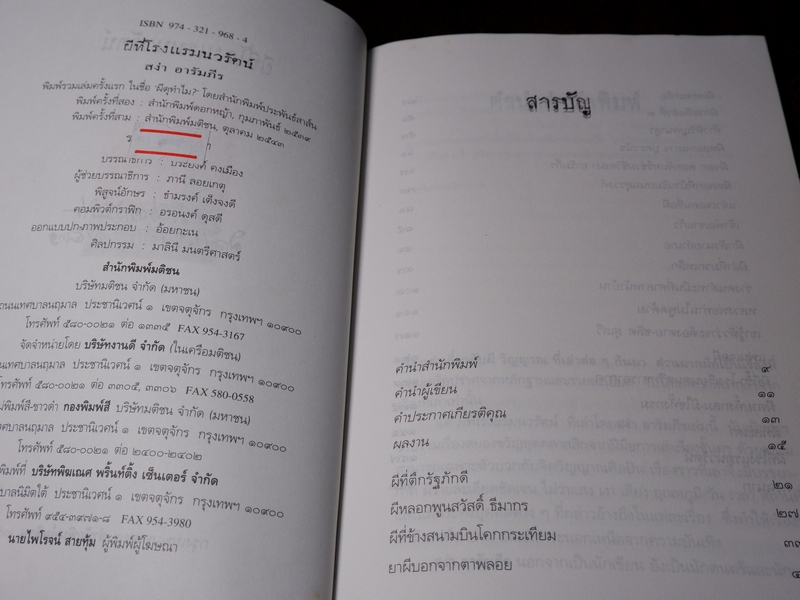 ISBN 974 - 321 - 968 - 4
ผีที่โรงแรมนวรัตน์
สง่า อารัมภีร
พิมพ์รวมเล่มครั้งแรก ในชื่อ 'ผีดุทำไม?' โดยสำนักพิมพ์ประพันธ์สาส์น
พิมพ์ครั้งที่สอง : สำนักพิมพ์ดอกหญ้า, กุมภาพันธ์ ๒๕๓๙
พิมพ์ครั้งที่สาม : สำนักพิมพ์มติชน, ตุลาคม ๒๕๔๓
บรรณาธิการ : ประยงค์ คงเมือง
ผู้ช่วยบรรณาธิการ : ภานี ลอยเกตุ
พิสูจน์อักษร : ธำมรงค์ เต็งจงดี
คอมพิวต์กราฟิก : อรอนงค์ ดุสดี
ออกแบบปก-ภาพประกอบ : อ้อยกะเน
ศิลปกรรม : มาลินี มนตรีศาสตร์
สำนักพิมพ์มติชน
บริษัทมติชน จำกัด (มหาชน)
ถนนเทศบาลนฤมาล ประชานิเวศน์ ๑ เขตจตุจักร กรุงเทพฯ ๑๐๙๐๐
โทรศัพท์ ๕๘๐-๐๐๒๑ ต่อ ๑๓๓๕ FAX 954-3167
จัดจำหน่ายโดย บริษัทงานดี จำกัด (ในเครือมติชน)
เทศบาลนฤมาล ประชานิเวศน์ ๑ เขตจตุจักร กรุงเทพฯ ๑๐๙๐๐
โทรศัพท์ ๕๘๐-๐๐๒๑ ต่อ ๓๓๐๕, ๓๓๐๖ FAX 580-0558
พิมพ์สี-ขาวดำ กองพิมพ์สี บริษัทมติชน จำกัด (มหาชน)
เทศบาลนฤมาล ประชานิเวศน์ ๑ เขตจตุจักร กรุงเทพฯ ๑๐๙๐๐
โทรศัพท์ ๕๘๐-๐๐๒๑ ต่อ ๒๔๐๐-๒๔๐๒
พิมพ์ที่ บริษัทพิฆเณศ พริ้นท์ติ้ง เซ็นเตอร์ จำกัด
บาลนิมิตใต้ ประชานิเวศน์ ๑ เขตจตุจักร กรุงเทพฯ ๑๐๙๐๐
โทรศัพท์ ๙๕๔-๓๙๗๑-๘ FAX 954-3980
นายไพโรจน์ สายทุ้ม ผู้พิมพ์ผู้โฆษณา
สารบัญ
คำนำสำนักพิมพ์ ๙
คำนำผู้เขียน ๑๑
คำประกาศเกียรติคุณ ๑๓
ผลงาน ๑๕
ผีที่ตึกรัฐภักดี ๒๑
ผีหลอกพูนสวัสดิ์ ธีมากร ๒๗
ผีที่ข้างสนามบินโคกกระเทียม ๓๓
ยาผีบอกจากตาพลอย